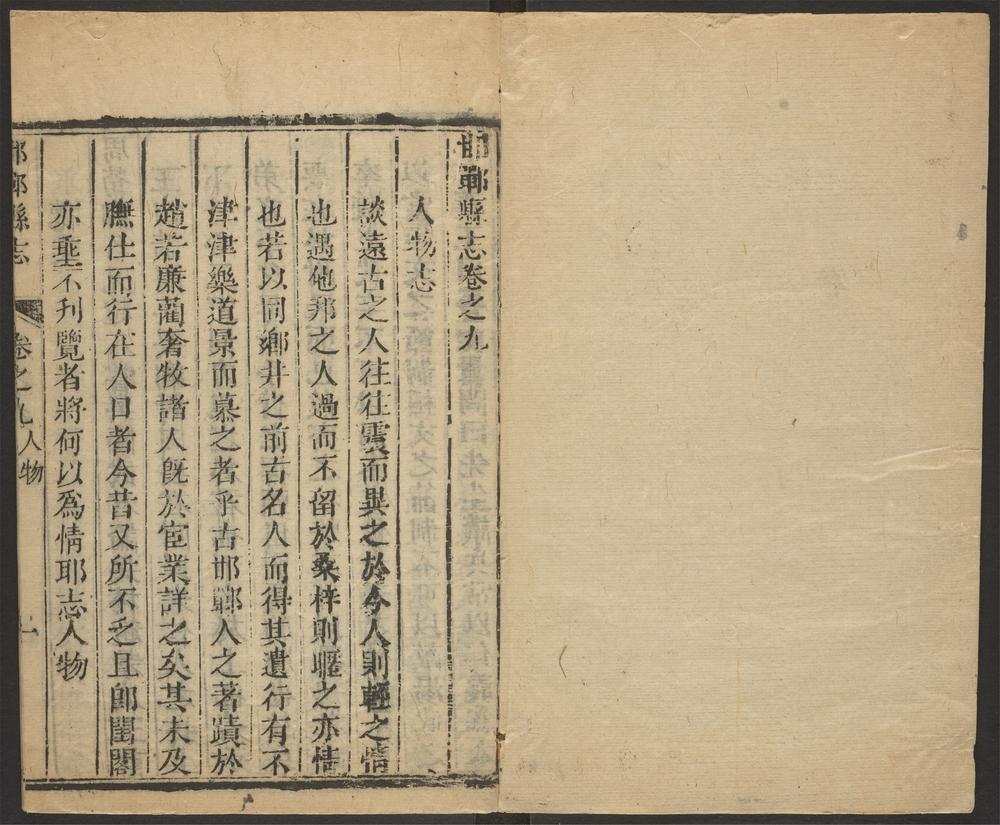 邯鄲縣志卷之九
人物志
談遠古之人往往震而異之於今人則輕之情
也遇他邦之人過而不留於桑梓則暱之亦情
也若以同鄉井之前古名人而得其遺行有不
津津樂道景而慕之者乎古邯鄲人之著蹟於
趙若廉藺奢牧諸人旣於宦業詳之矣其未及
膴仕而行在人口者今昔又所不乏且郎閨閣
亦垂不刋覽者將何以爲情耶志人物
邯鄲縣志 卷之九人物 一